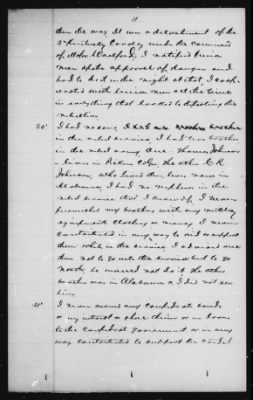 11
them the way. It was a detachment of the
3rd Kentucky Cavalry under the command
of Major Wolford, I notified Union
men of the approach of danger and
had to do it in the night at that I coop-
erated with Union men all the time
in everything that looked to defeating the
rebellion
30" I had no sons,
in the rebel service, I had two brothers
in the rebel army One Thomas Johnson
& lives in Pickens Co Ga the other C R
Johnson, who lived then lives now in
Alabama, I had no nephews in the
rebel service that I know of, I never
furnished my brothers with any military
equipments clothing or money, I never
contributed in any way to aid or support
them while in the service, I advised one
then not to go into the service but to go
North, he would not do it the other
brother was in Alabama & I did not see
him
31" I never owned any Confederate bonds
or any interest or share therein or in loans
to the Confederate government or in any
way contributed to support the credit